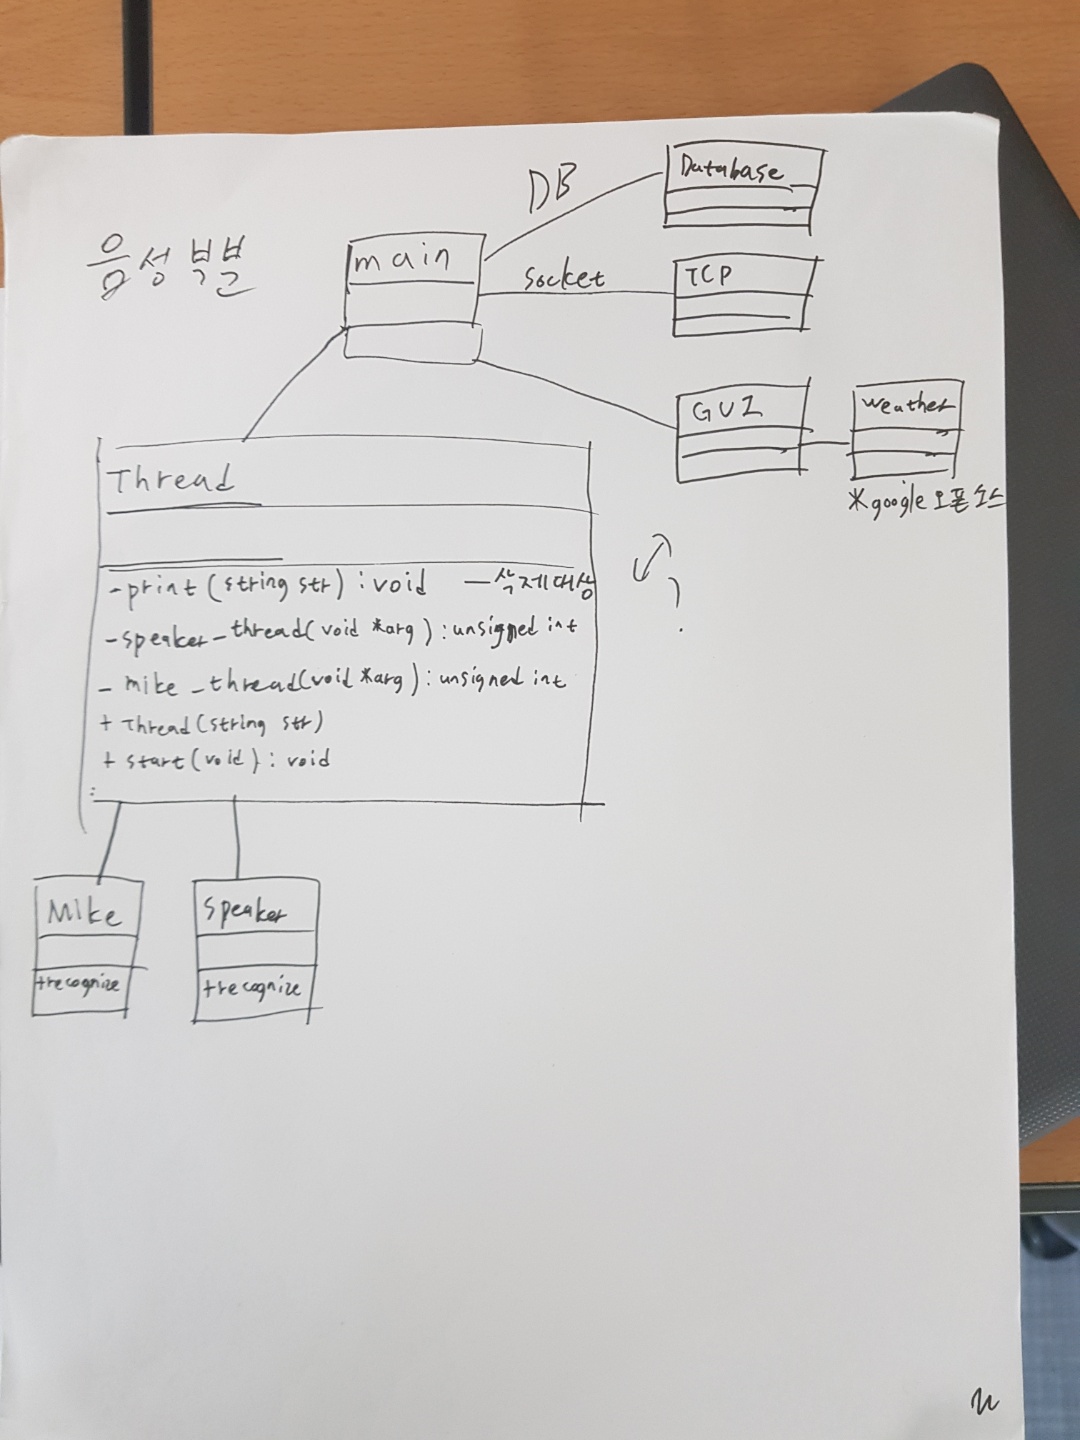 음성 부분
DB
Database
main
socket
TCP
GUI
weather
*google 오픈소스
Thread
-print(string str) : void — 삭제대상
-speaker_thread(void *arg) : unsigned int
- mike_thread(void *arg) : unsigned int
+ Thread(string str)
+ start(void) : void
?
Mike
+recognize
speaker
+recognize